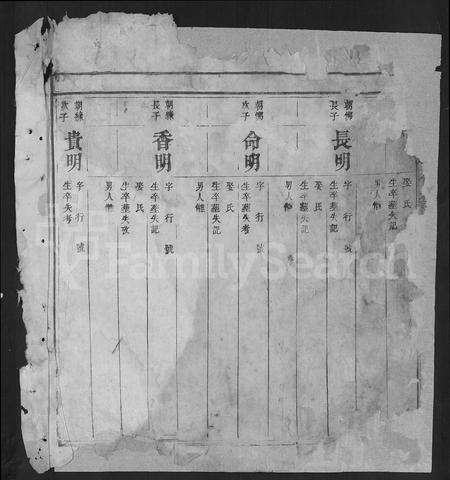 娶氏
生卒墓失記
男人僱
朝爝
長子
長明
字 行 號
生卒墓失記
娶 氏
生卒墓失記
男人僱
次子
命明
字 行 號
生卒墓失考
娶氏
生卒墓失記
男人僱
朝練
長子
香明
字 行 號
生卒墓失記
娶氏
生卒墓失攷
男人僱
朝練
次子
貴明
字 行 號
生卒失考
FamilySearch